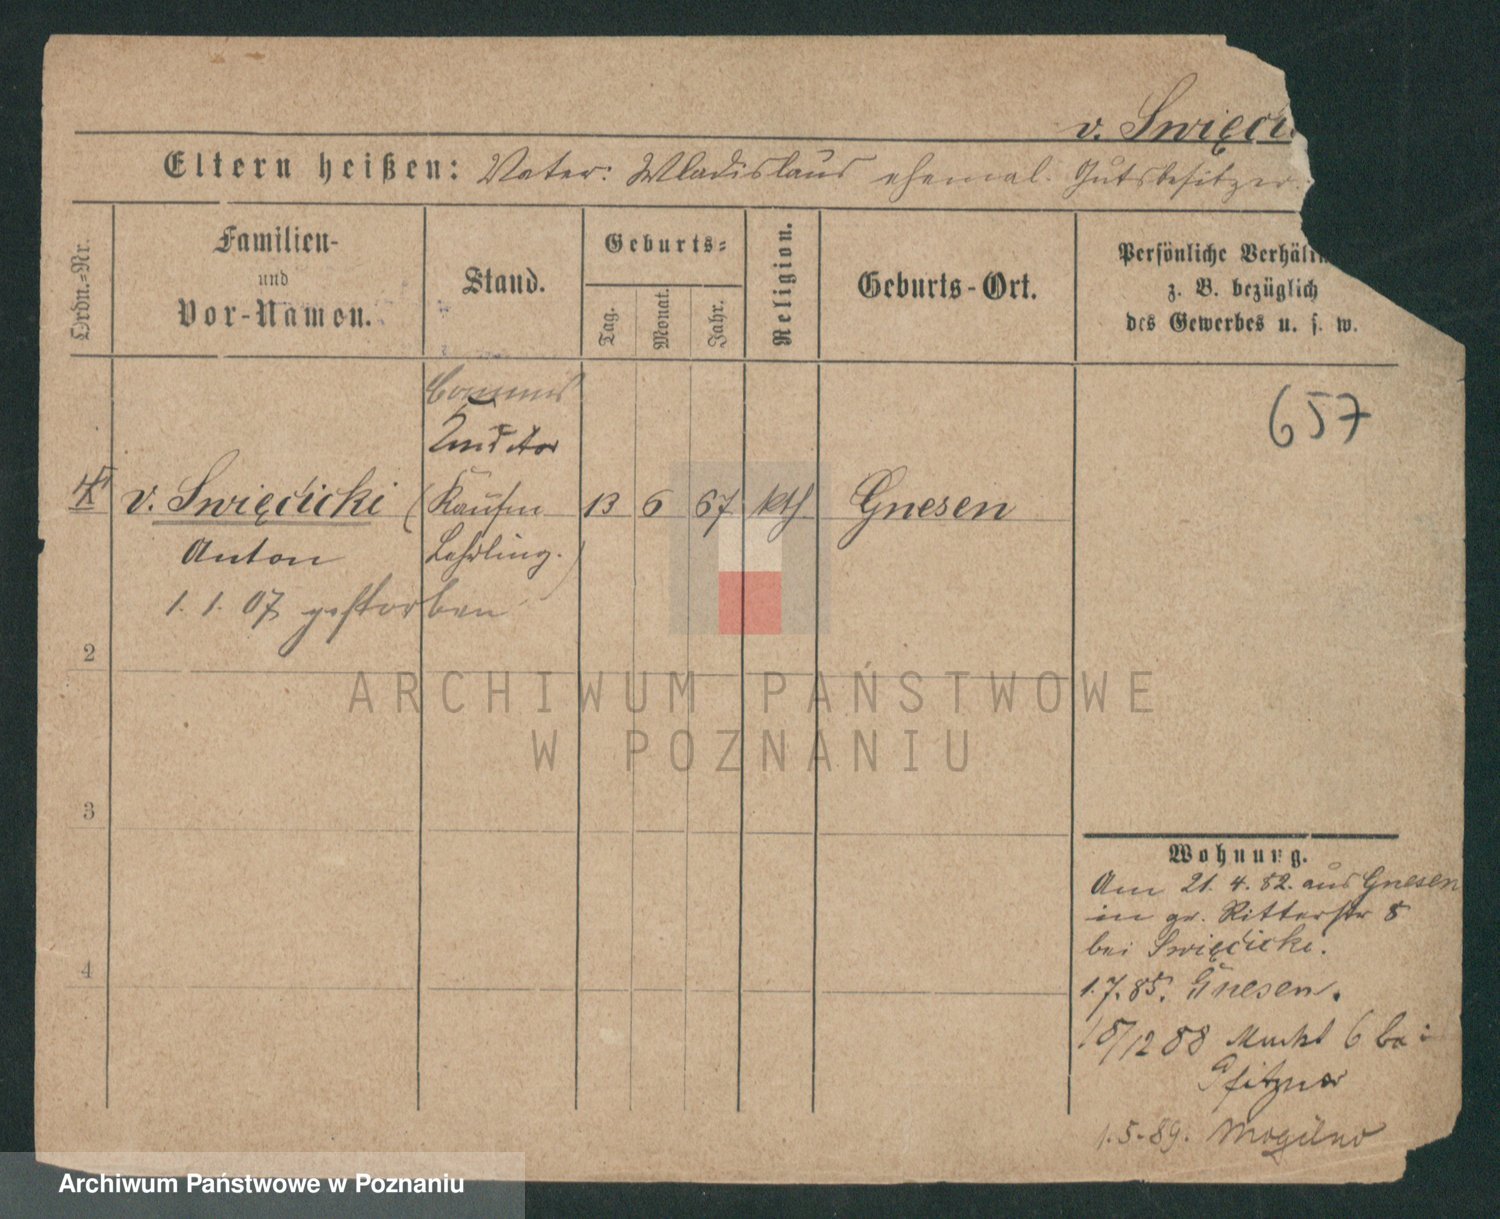 v. Święcic
Eltern heißen: Vater: Wladislaus ehemal. Gutsbesitzer.
Ordn.-Nr.
Familien-
und
Vor-Namen.
Stand.
Geburts-
Tag.
Monat.
Jahr.
Religion.
Geburts-Ort.
Persönliche Verhältn
z. B. bezüglich
des Gewerbes u. s. w.
657
Commis
Conditor
v. Święcicki (Kaufm 13 6 67 kth Gnesen
Anton Lehrling.)
1. 1. 07 gestorben
2
3
4
ARCHIWUM PAŃSTWOWE
W POZNANIU
Wohnung.
Am 21. 4. 82. aus Gnesen
in gr. Ritterstr 8
bei Święcicki.
1.7.85. Gnesen.
18/12 88 Markt 6 bei
Pfitzner
1.5.89. Mogilno
Archiwum Państwowe w Poznaniu